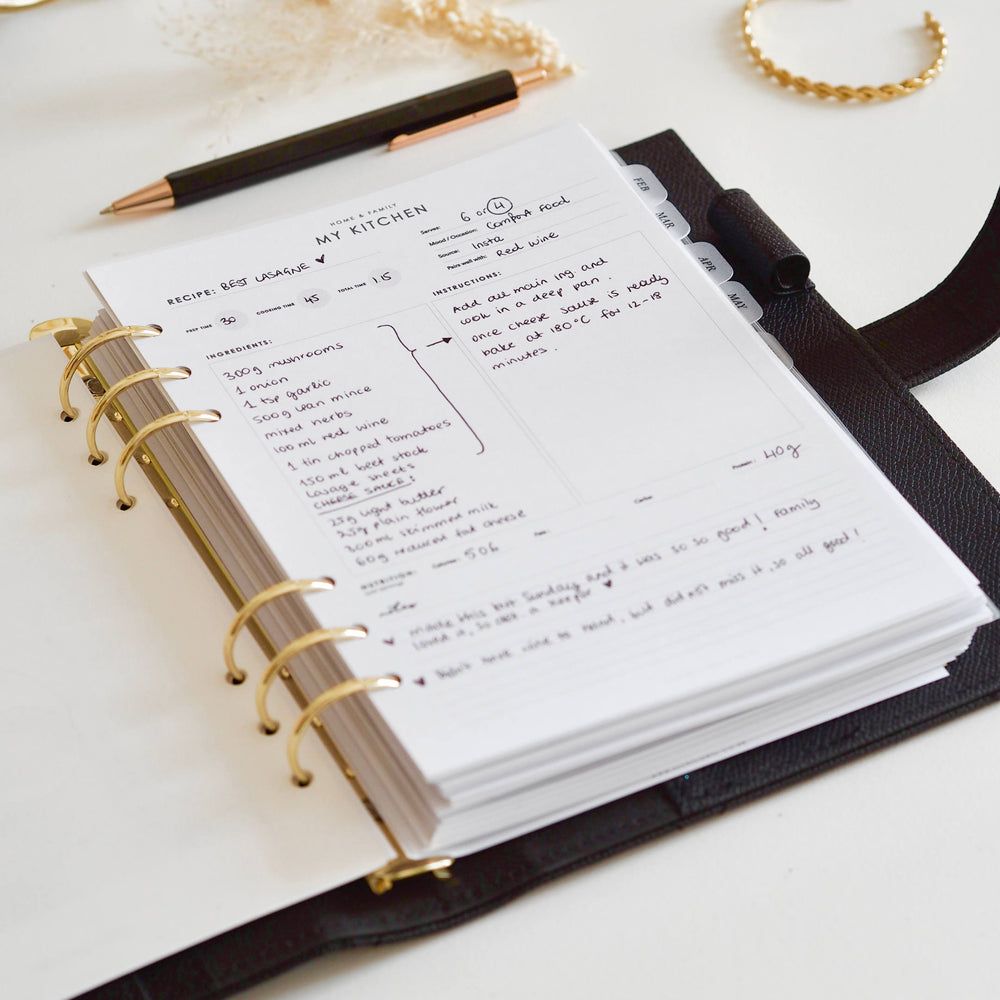 HOME & FAMILY
MY KITCHEN
RECIPE: BEST LASAGNE ♥
PREP TIME 30 COOKING TIME 45 TOTAL TIME 1.15
Serves: 6 or 4
Mood / Occasion: Comfort Food
Source: Insta
Pairs well with: Red wine
INGREDIENTS:
300g mushrooms
1 onion
1 tsp garlic
500g lean mince
mixed herbs
100 ml red wine
1 tin chopped tomatoes
150 ml beef stock
Lasage sheets
CHEESE SAUCE:
25g light butter
25g plain flower
300ml skimmed milk
60g reduced fat cheese
INSTRUCTIONS:
Add all main ing. and
cook in a deep pan.
once cheese sause is ready
bake at 180°C for 12-18
minutes.
NUTRITION:
Calories: 506
Fats:
Carbs:
Protein: 40g
notes
♥ made this last Sunday and it was so so good! Family
loved it, so def. a keeper ♥
♥ Didn't have wine to hand, but did not miss it, so all good!
FEB
MAR
APR
MAY